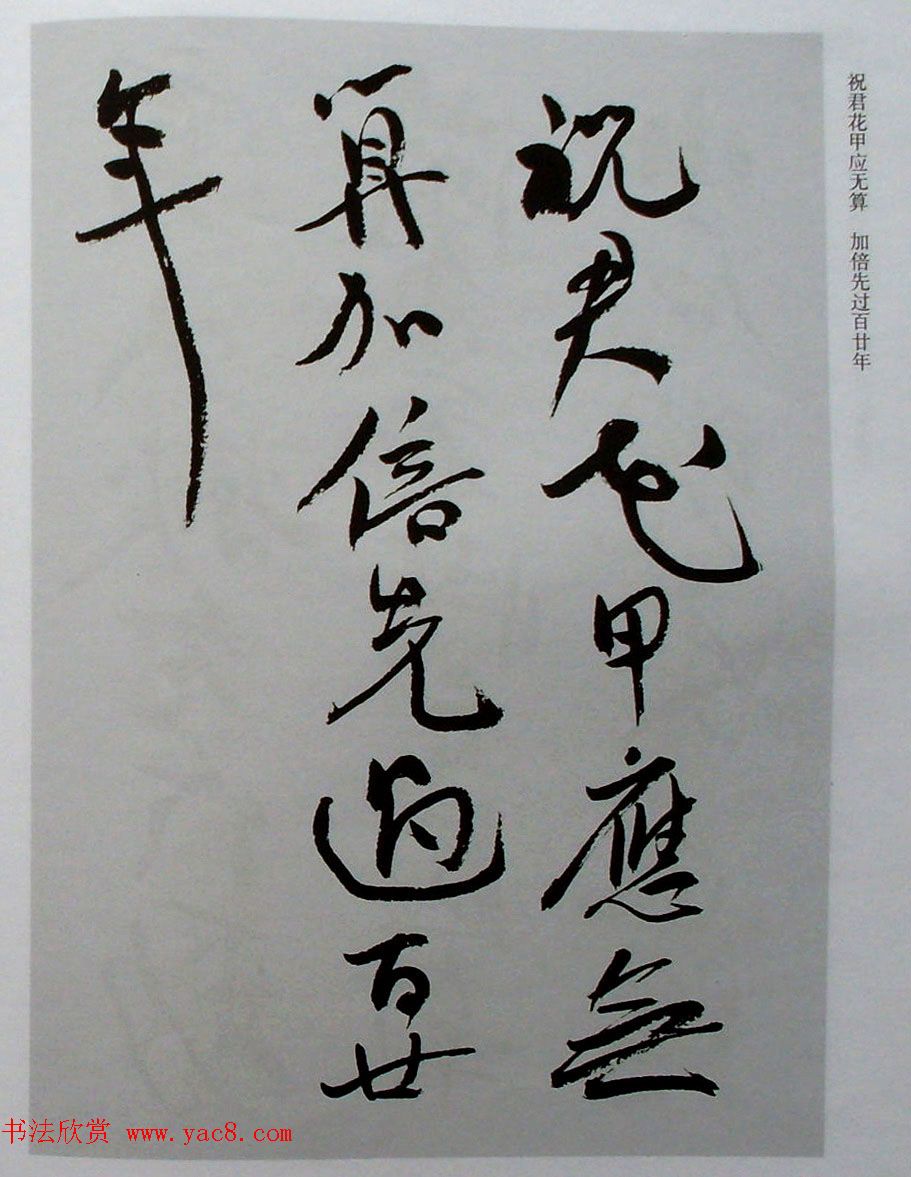 祝君花甲應無
算加倍先過百廿
年
祝君花甲应无算　加倍先过百廿年
书法欣赏 www.yac8.com